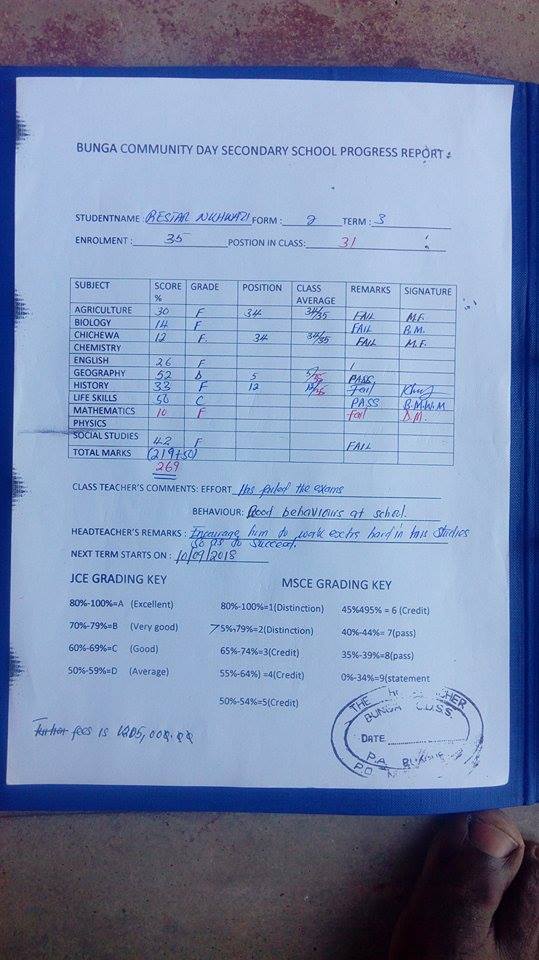 BUNGA COMMUNITY DAY SECONDARY SCHOOL PROGRESS REPORT
STUDENTNAME : RESTAR NKHWAZI FORM : 2 TERM : 3
ENROLMENT : 35 POSTION IN CLASS: 31
SUBJECT SCORE % GRADE POSITION CLASS AVERAGE REMARKS SIGNATURE
AGRICULTURE 30 F 34 34/35 FAIL M.F.
BIOLOGY 14 F FAIL B.M.
CHICHEWA 12 F 34 34/35 FAIL M.F.
CHEMISTRY
ENGLISH 26 F
GEOGRAPHY 52 D 5 PASS
HISTORY 33 F 12 fail
LIFE SKILLS 50 C PASS B.M.W.M
MATHEMATICS 10 F fail D.M.
PHYSICS
SOCIAL STUDIES 42 F FAIL
TOTAL MARKS (219+50)
269
CLASS TEACHER'S COMMENTS: EFFORT Has failed the exams
BEHAVIOUR: Good behaviours at school.
HEADTEACHER'S REMARKS : Encourage him to work extra hard in his studies
so as to succeed.
NEXT TERM STARTS ON : 10/09/2018
JCE GRADING KEY MSCE GRADING KEY
80%-100%=A (Excellent) 80%-100%=1(Distinction) 45%495% = 6 (Credit)
70%-79%=B (Very good) 75%79%=2(Distinction) 40%-44%= 7(pass)
60%-69%=C (Good) 65%-74%=3(Credit) 35%-39%=8(pass)
50%-59%=D (Average) 55%-64%) =4(Credit) 0%-34%=9(statement
50%-54%=5(Credit)
fees is
THE
BUNGA C.D.S.S.
DATE
P.A.
P.O.